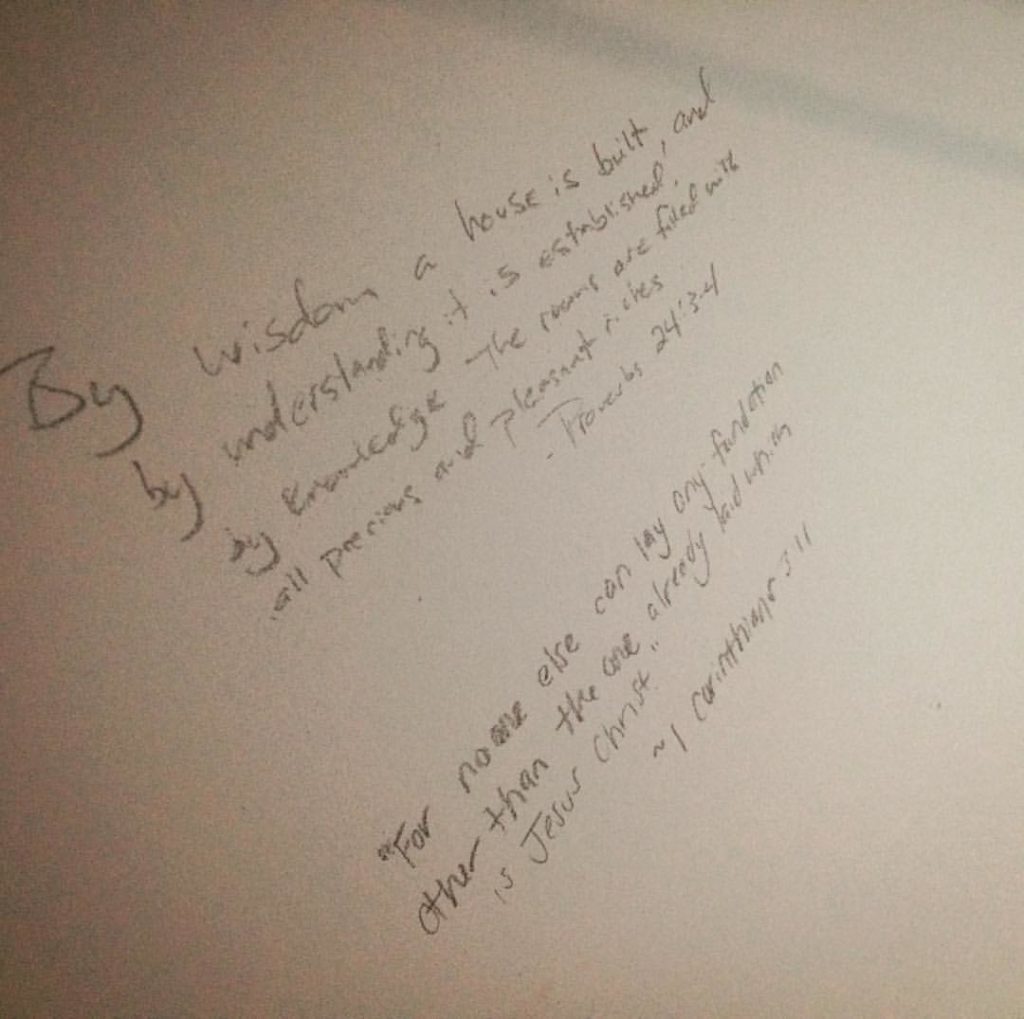 By wisdom a house is built, and
by understanding it is established,
by knowledge The rooms are filled with
all precious and pleasant riches
- Proverbs 24:3-4
"For no one else can lay any fundation
other than the one already laid which
is Jesus Christ."
~ 1 Corinthians 3:11